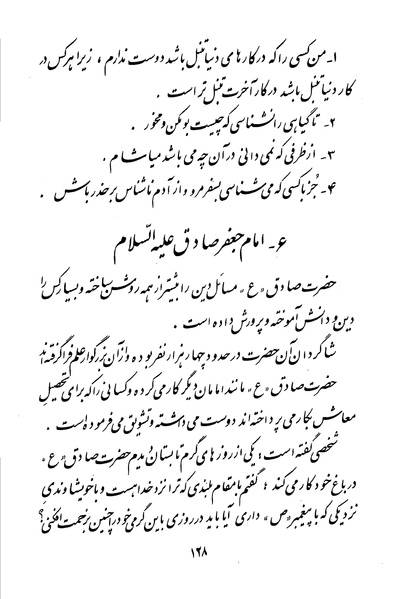 ۱ـ من کسی را که در کارهای دنیا تنبل باشد دوست ندارم ، زیرا هر کس در
کار دنیا تنبل باشد در کار آخرت تنبل‌تر است .
۲ـ تا گیاهی را نشناسی که چیست بو مکن و مخور .
۳ـ از ظرفی که نمی‌دانی در آن چه می‌باشد میاشام .
۴ـ جز با کسی که می‌شناسی بسفر مرو و از آدم ناشناس بر حذر باش .
۶ـ امام جعفر صادق علیه السّلام
حضرت صادق «ع» مسائل دین را بیشتر از همه روشن ساخته و بسیار کس را
دین و دانش آموخته و پرورش داده است .
شاگردان آن حضرت در حدود چهار هزار نفر بوده و از آن بزرگوار علم فرا گرفته‌اند
حضرت صادق «ع» مانند امامان دیگر کار می‌کرده و کسانی را که برای تحصیل
معاش بکار می‌پرداخته‌اند دوست می‌داشته و تشویق می‌فرموده است .
شخصی گفته است : یکی از روزهای گرم تابستان دیدم حضرت صادق «ع»
در باغ خود کار می‌کند ؛ گفتم با مقام بلندی که ترا نزد خدا هست و با خویشاوندی
نزدیکی که با پیغمبر «ص» داری آیا باید در روزی باین گرمی خود را چنین بزحمت افکنی؟
۱۲۸